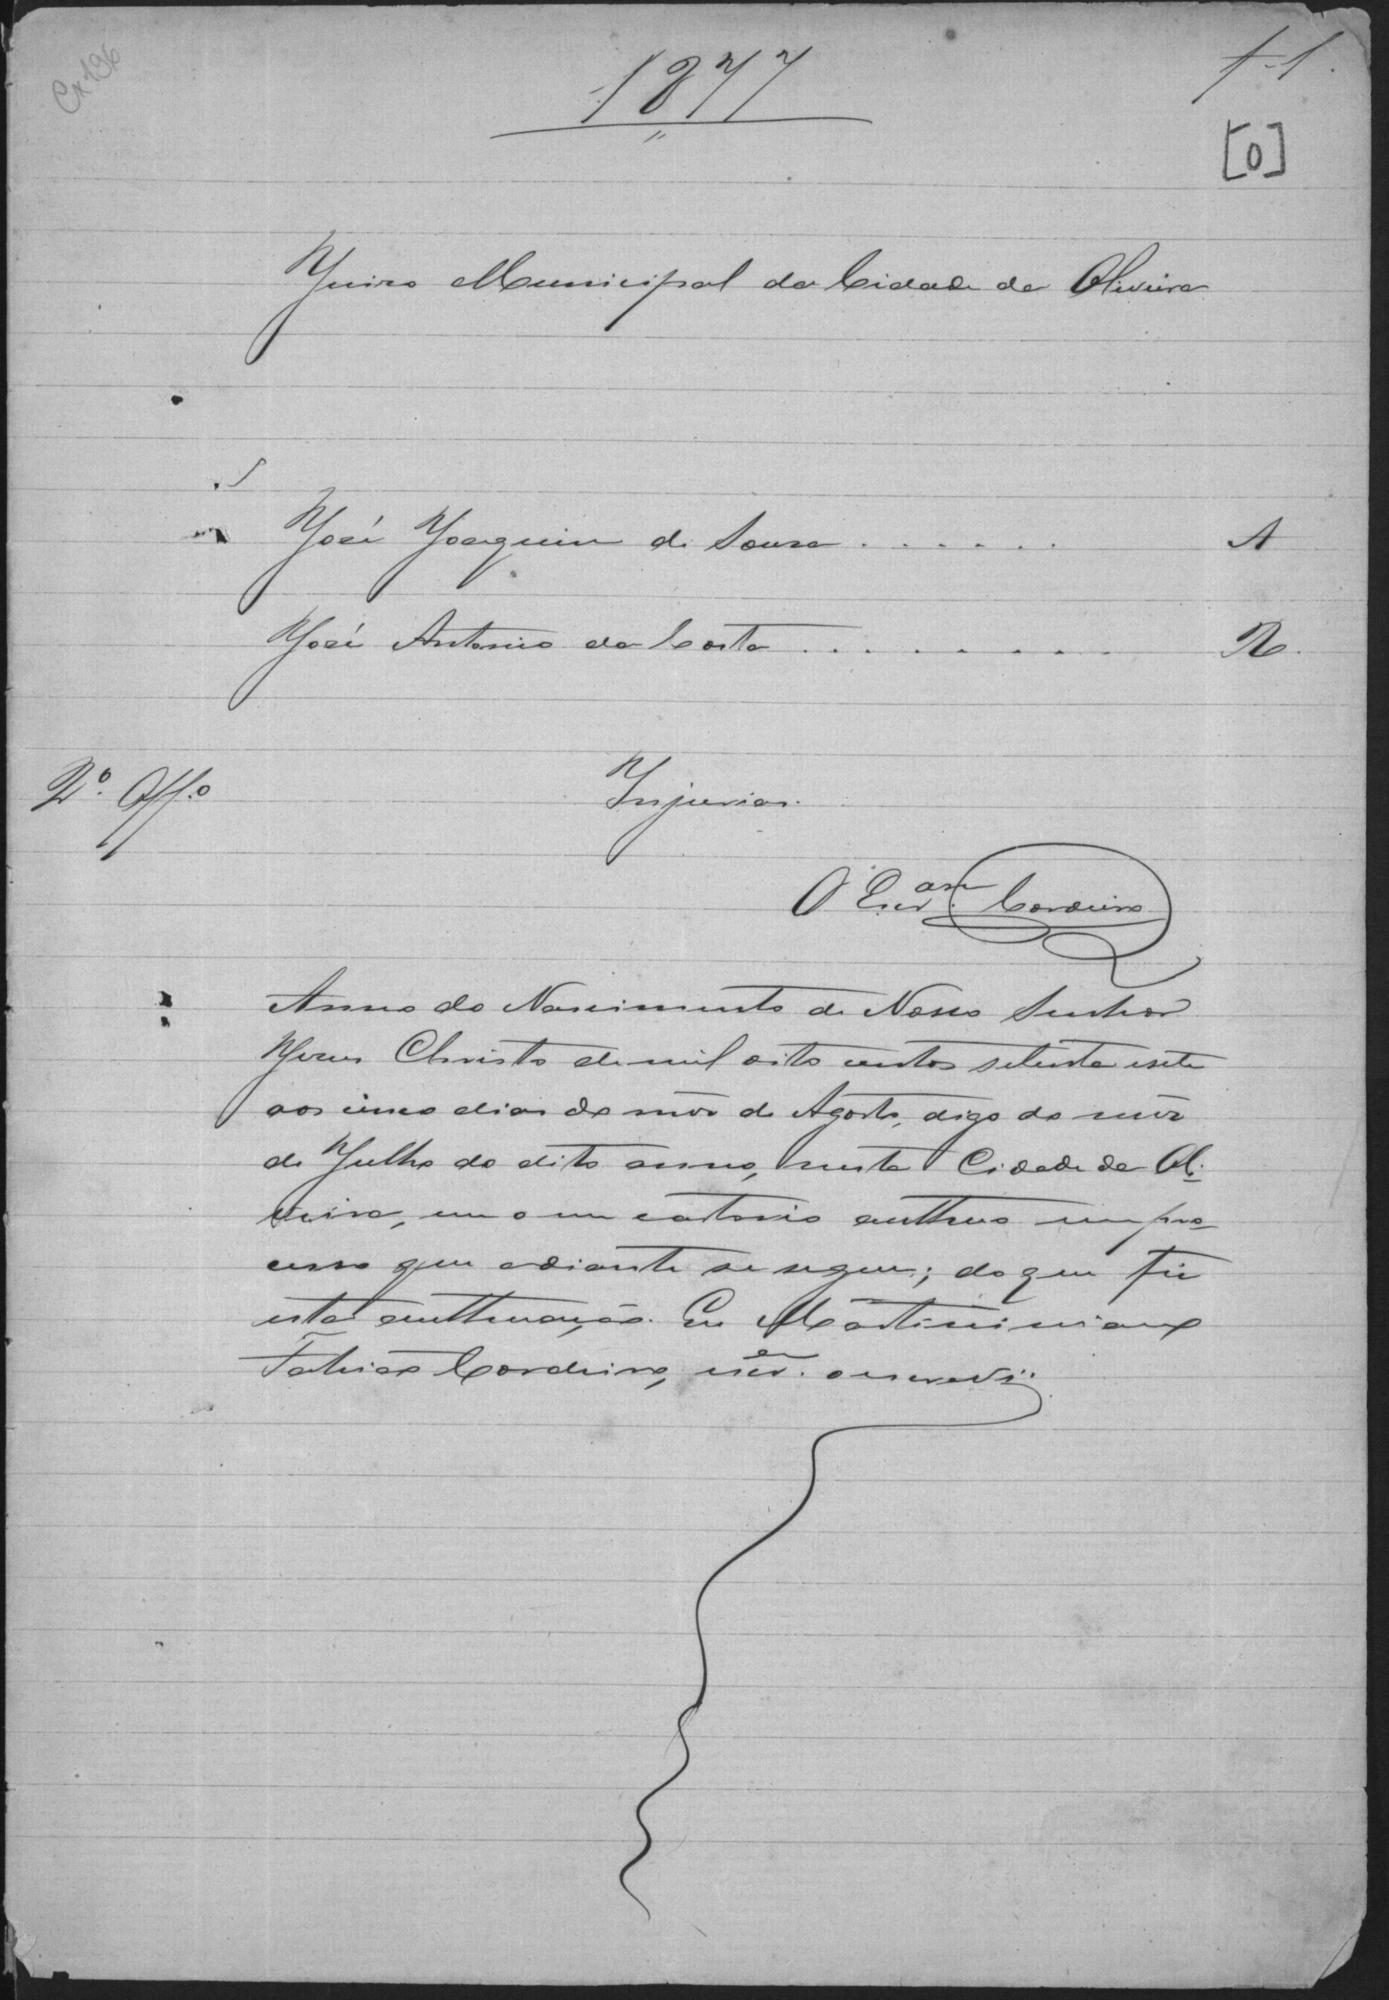 Cx 196
1877
f-1.
[0]
Juizo Municipal da Cidade de Oliveira
José Joaquim de Souza . . . . . . A
José Antonio da Costa . . . . . . . . . R.
2º. Off.º
Injurias.
O Escr.am Cordeiro
Anno do Nascimento de Nosso Senhor
Jesus Christo de mil oito centos setenta e sete
aos cinco dias do mez de Agosto, digo do mez
de Julho do dito anno, nesta Cidade de Oli-
veira, em o meu cartorio authuo um pro-
cesso que adiante se segue; do que fiz
esta authuação. Eu Martiniano
Tobias Cordeiro, escr.am o escrevi.